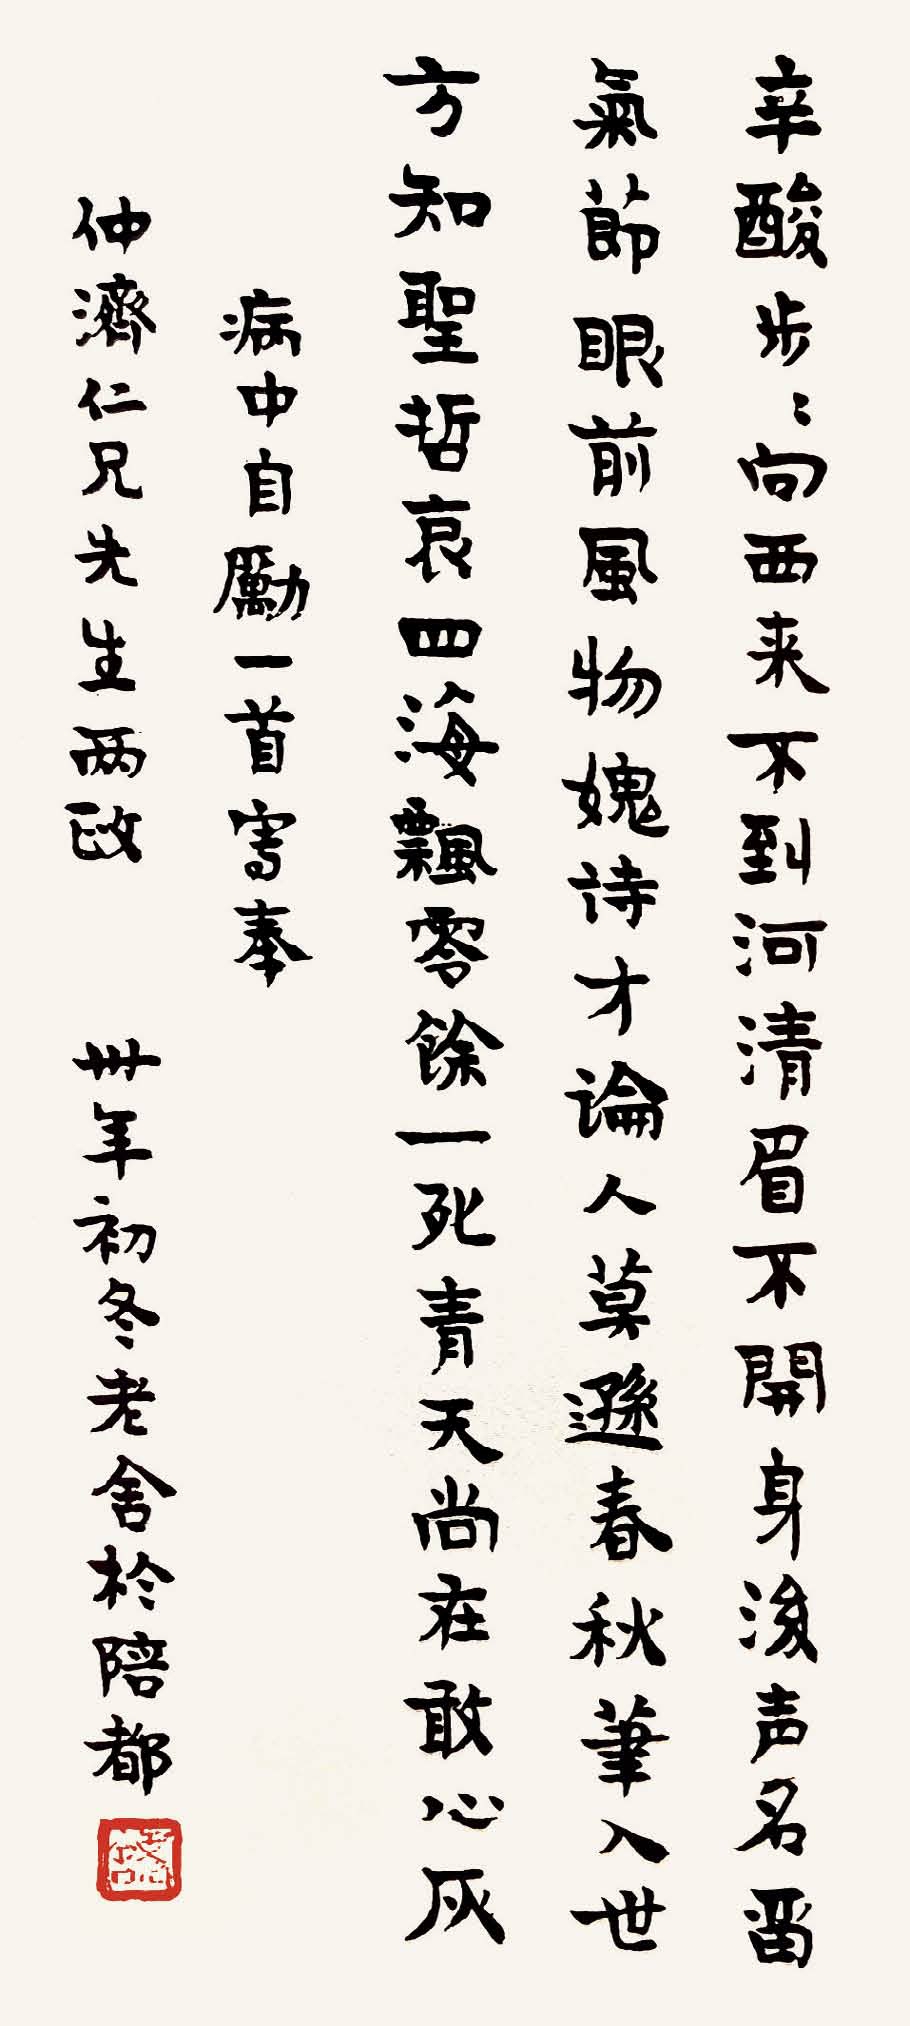 辛酸步〻向西来不到河清眉不開身後声名留
氣節眼前風物媿詩才論人莫遜春秋筆入世
方知聖哲哀四海飄零餘一死青天尚在敢心灰
病中自勵一首寫奉
仲濟仁兄先生兩政 卅年初冬老舍於陪都